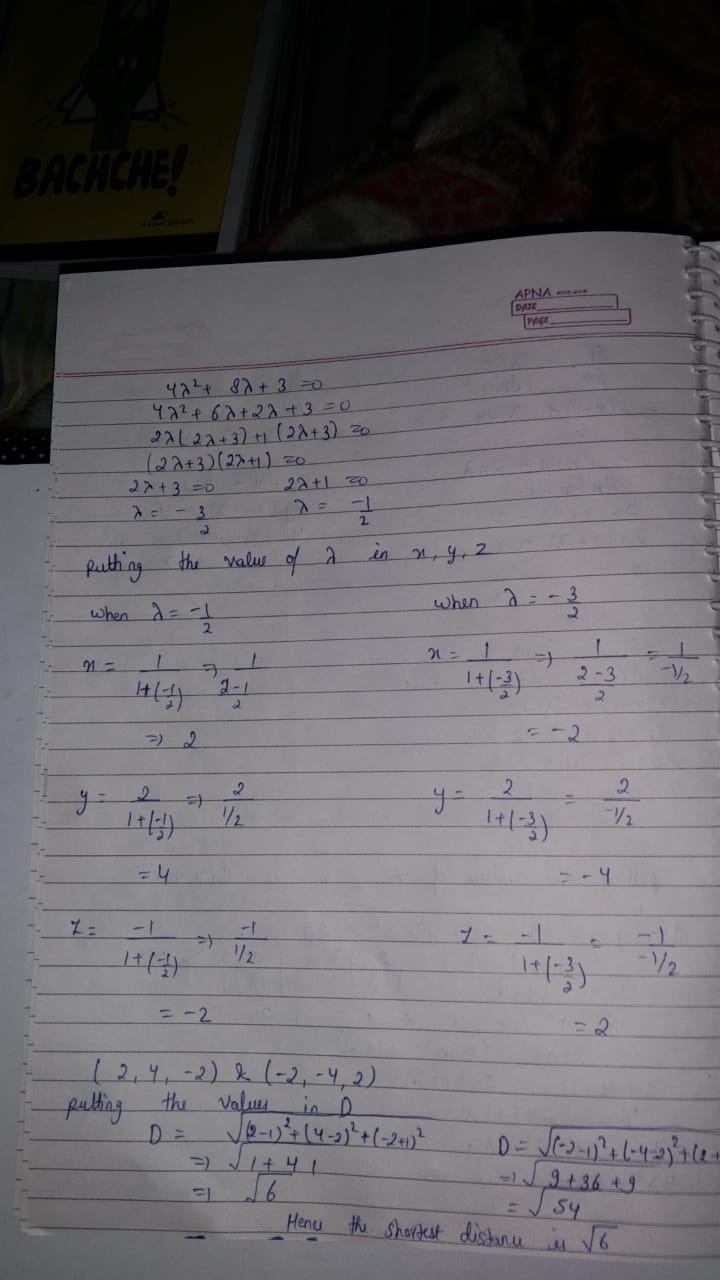 BACHCHE!
APNA
DATE
PAGE
4λ² + 8λ + 3 = 0
4λ² + 6λ + 2λ + 3 = 0
2λ(2λ+3) +1 (2λ+3) = 0
(2λ+3)(2λ+1) = 0
2λ+3 = 0 2λ+1 = 0
λ = -3/2 λ = -1/2
putting the value of λ in x, y, z
when λ = -1/2 when λ = -3/2
x = 1/(1+(-1/2)) ⇒ 1/((2-1)/2) x = 1/(1+(-3/2)) ⇒ 1/((2-3)/2) = 1/(-1/2)
⇒ 2 = -2
y = 2/(1+(-1/2)) ⇒ 2/(1/2) y = 2/(1+(-3/2)) = 2/(-1/2)
= 4 = -4
z = -1/(1+(-1/2)) ⇒ -1/(1/2) z = -1/(1+(-3/2)) = -1/(-1/2)
= -2 = 2
(2, 4, -2) & (-2, -4, 2)
putting the values in D
D = √(2-1)²+(4-2)²+(-2+1)² D = √(-2-1)²+(-4-2)²+(2+
⇒ √1+4 1 ⇒ √9+36+9
⇒ √6 = √54
Hence the shortest distance is √6